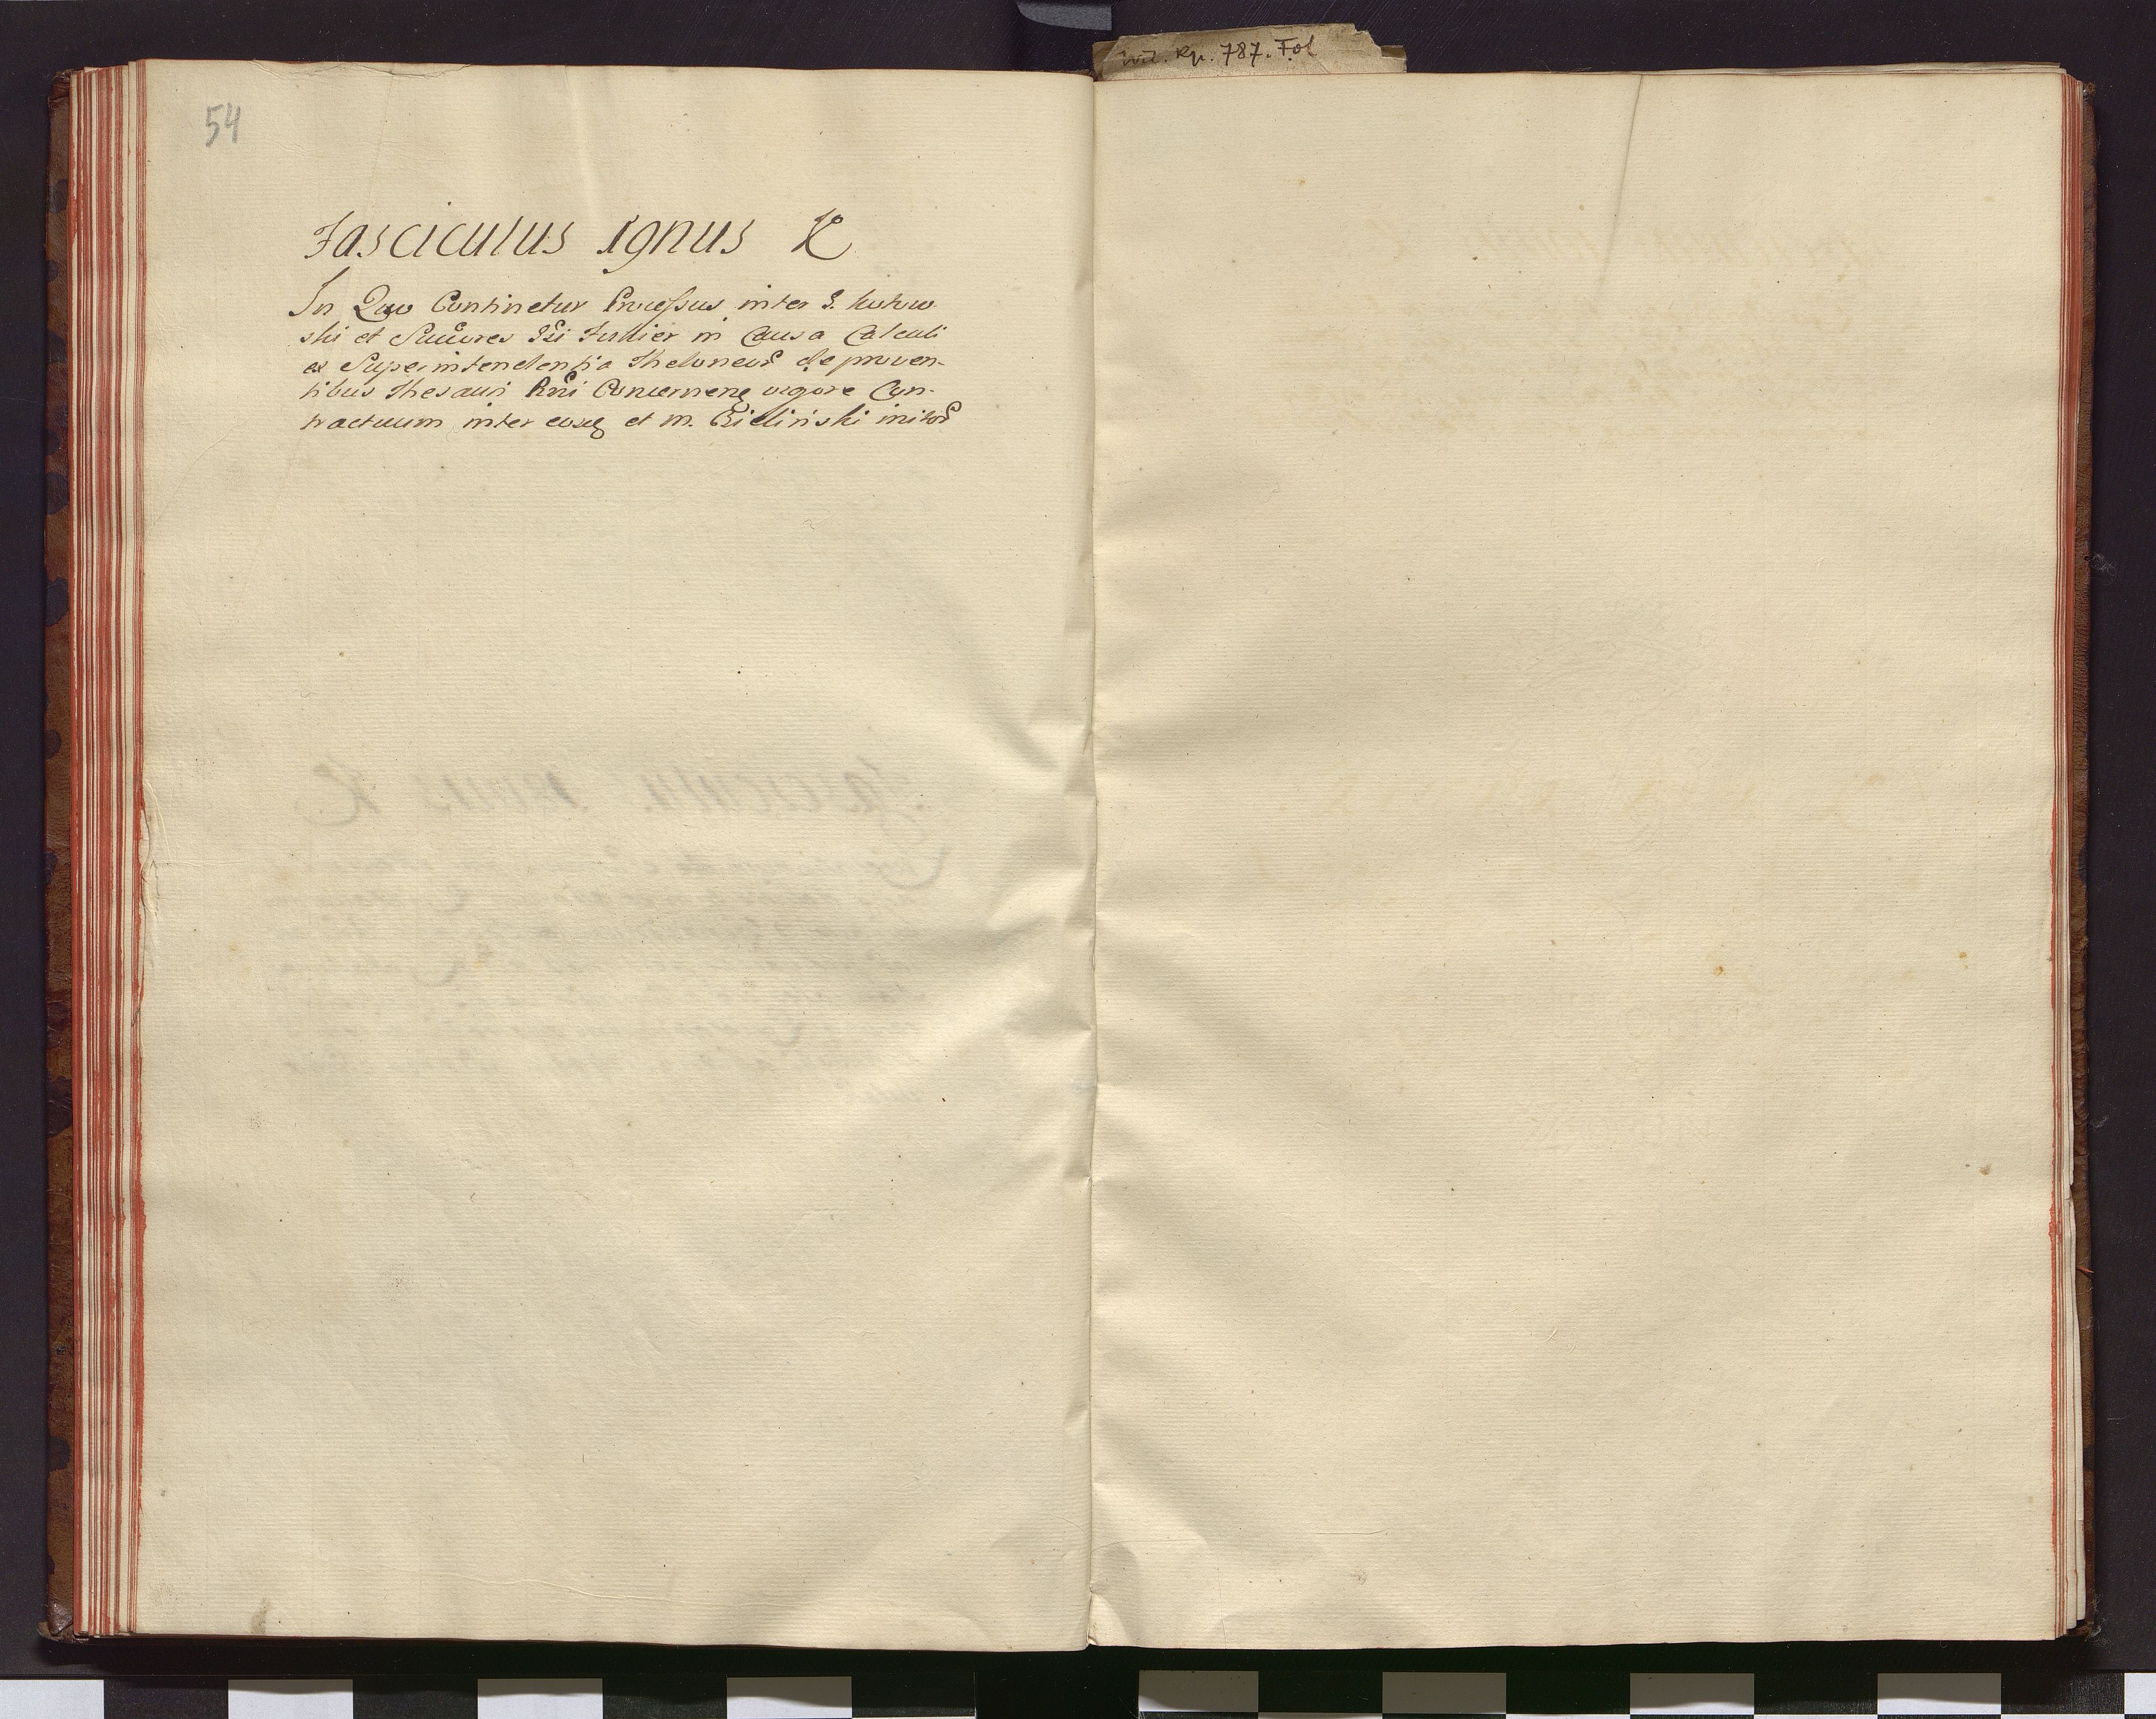 Wil. Rp. 787. Fol
54
Fasciculus 19nus K
In Quo Continetur Processus inter G. Kutow-
ski et Succores Isi Turlier in Causa Calculi
ex Superintendentia Theloneor de proven-
tibus Thesauri Rni Concerneng vigore Con-
tractuum inter eosq et M. Bielinski initor